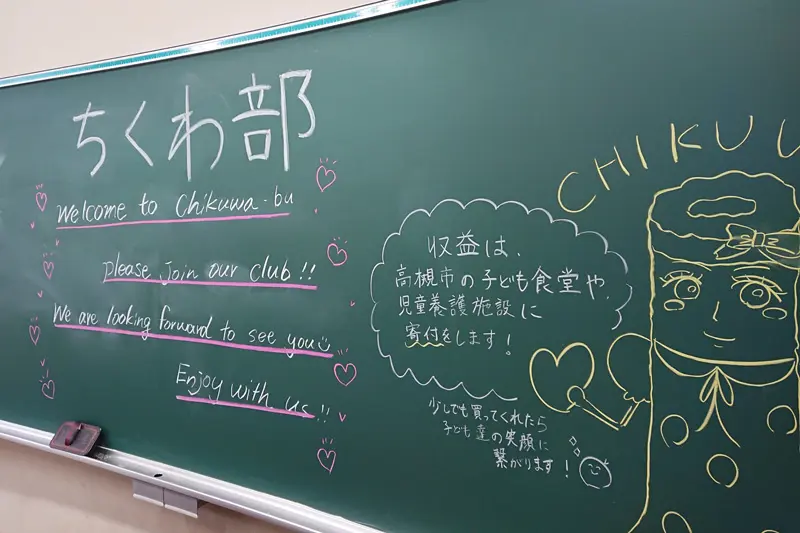 ちくわ部
Welcome to Chikuwa-bu
please join our club!!
We are looking forward to see you
Enjoy with us!!
収益は、
高槻市の子ども食堂や、
児童養護施設に
寄付をします!
少しでも買ってくれたら
子ども達の笑顔に
繋がります!
CHIKU